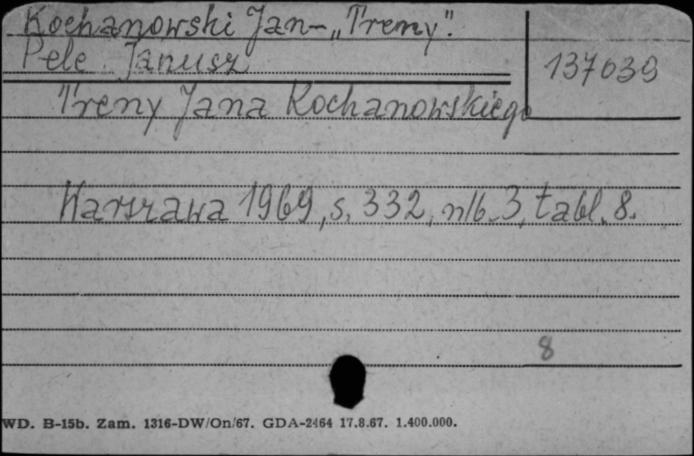 Kochanowski Jan – „Treny”.
Pelc Janusz
137639
Treny Jana Kochanowskiego
Warszawa 1969, s. 332, nlb. 3, tabl. 8.
8
WD. B-15b. Zam. 1316-DW/On/67. GDA-2464 17.8.67. 1.400.000.